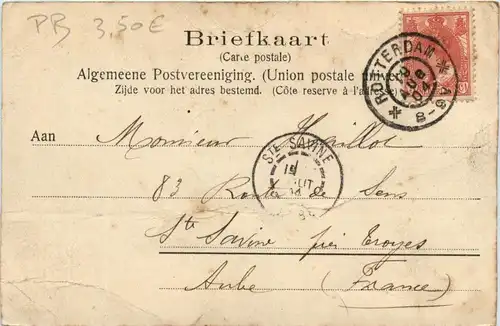 PB 3,50€
Briefkaart
(Carte postale)
Algemeene Postvereeniging. (Union postale universelle)
Zijde voor het adres bestemd. (Côte réservé à l'adresse)
ROTTERDAM
STE SAVINE
Aan Monsieur
83 Route de Sens
Ste Savine près Troyes
Aube (France)